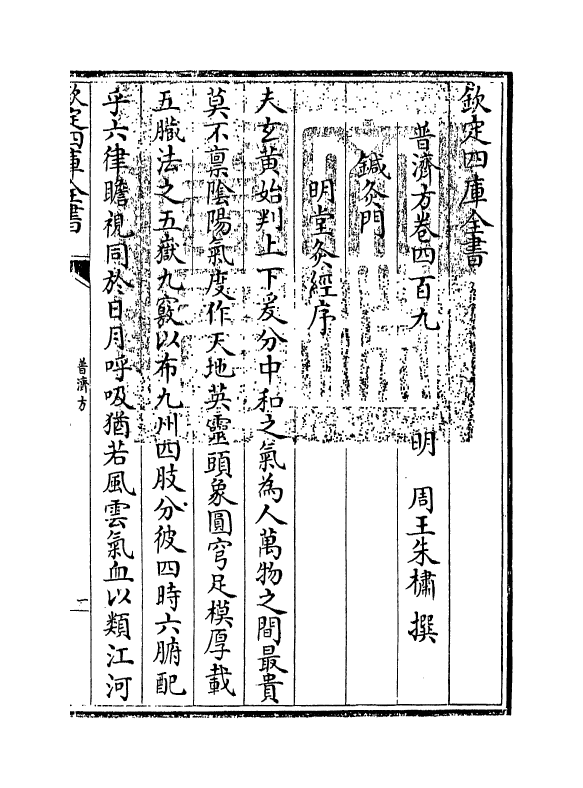 欽定四庫全書
普濟方卷四百九 明 周王朱橚 撰
鍼灸門
明堂灸經序
夫玄黃始判上下爰分中和之氣為人萬物之間最貴
莫不禀陰陽氣度作天地英靈頭象圓穹足模厚載
五臓法之五嶽九竅以布九州四肢分彼四時六腑配
乎六律瞻視同於日月呼吸猶若風雲氣血以類江河
欽定四庫全書
普濟方
一